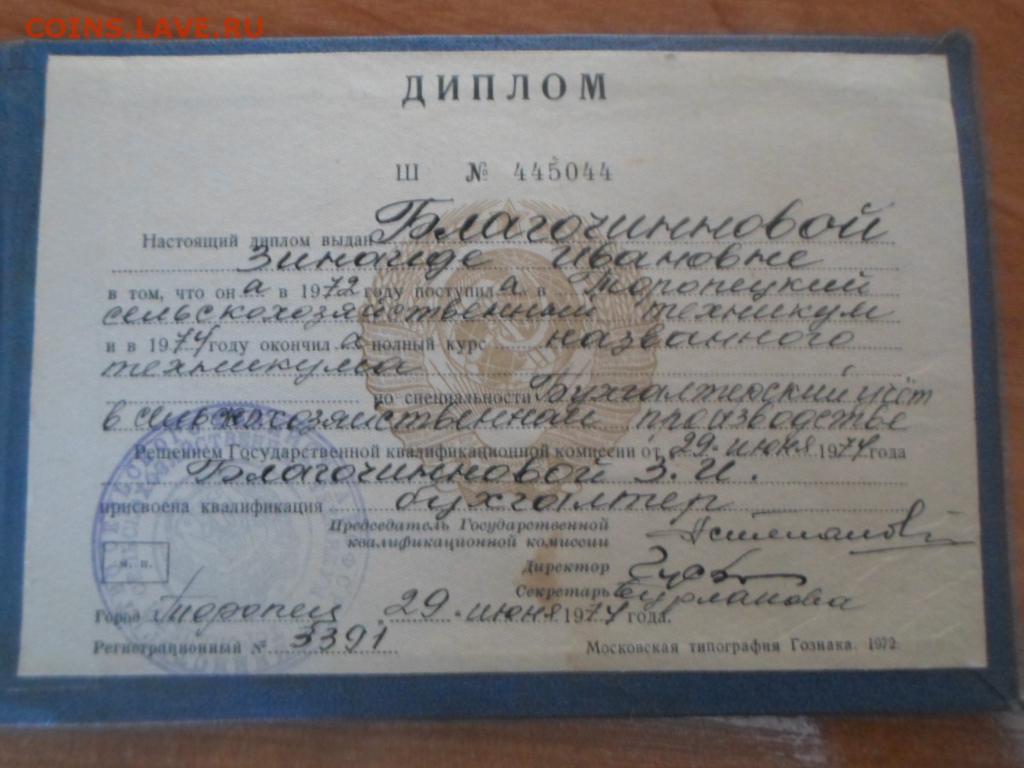 COINS.LAVE.RU
ДИПЛОМ
Ш № 445044
Настоящий диплом выдан Благочинновой
Зинаиде Ивановне
в том, что он а в 1972 году поступил а в Торопецкий
сельскохозяйственный техникум
и в 1974 году окончил а полный курс названного
техникума
по специальности Бухгалтерский учёт
в сельскохозяйственном производстве
Решением Государственной квалификационной комиссии от 29 июня 1974 года
Благочинновой З. И.
присвоена квалификация бухгалтер
Председатель Государственной
квалификационной комиссии
Директор
Секретарь Бурлакова
м. п.
Город Торопец 29 июня 1974 года.
Регистрационный № 3391
Московская типография Гознака. 1972.